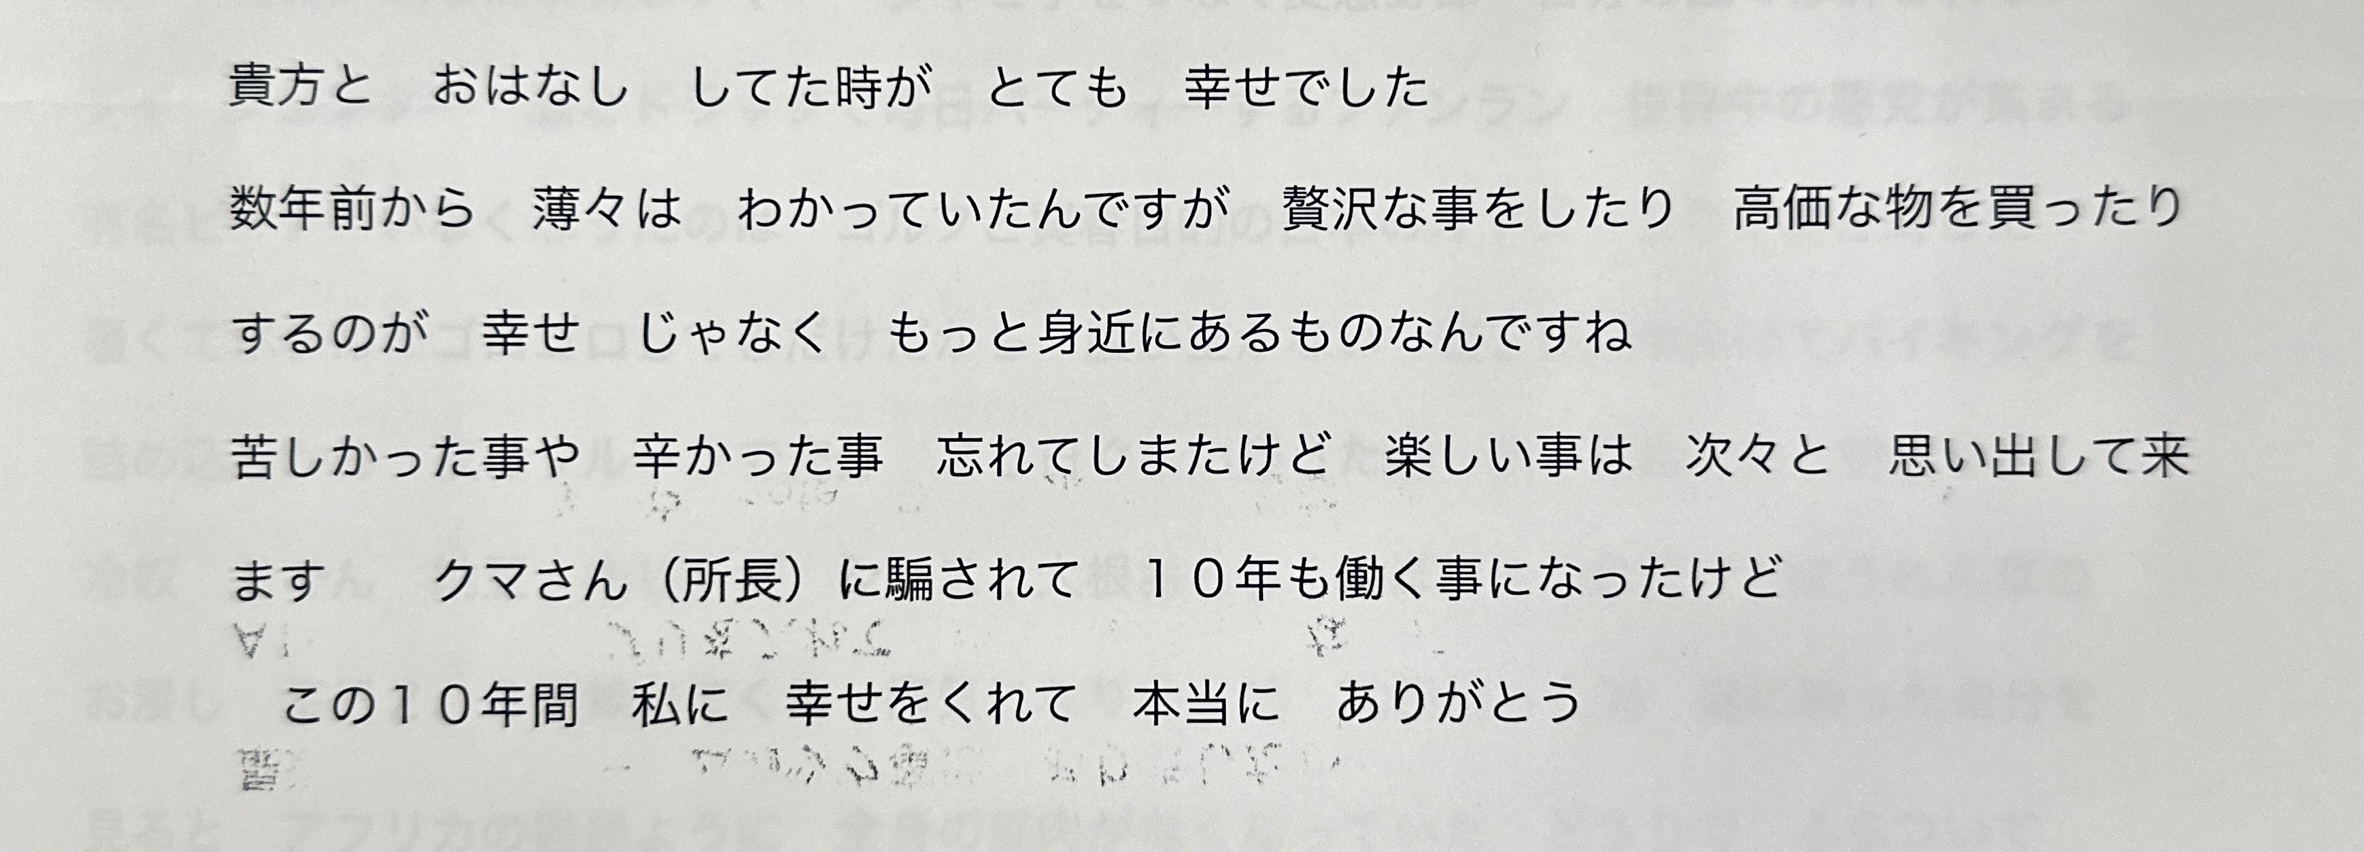 貴方と　おはなし　してた時が　とても　幸せでした
数年前から　薄々は　わかっていたんですが　贅沢な事をしたり　高価な物を買ったり
するのが　幸せ　じゃなく　もっと身近にあるものなんですね
苦しかった事や　辛かった事　忘れてしまたけど　楽しい事は　次々と　思い出して来
ます　　クマさん（所長）に騙されて　１０年も働く事になったけど
　この１０年間　私に　幸せをくれて　本当に　ありがとう